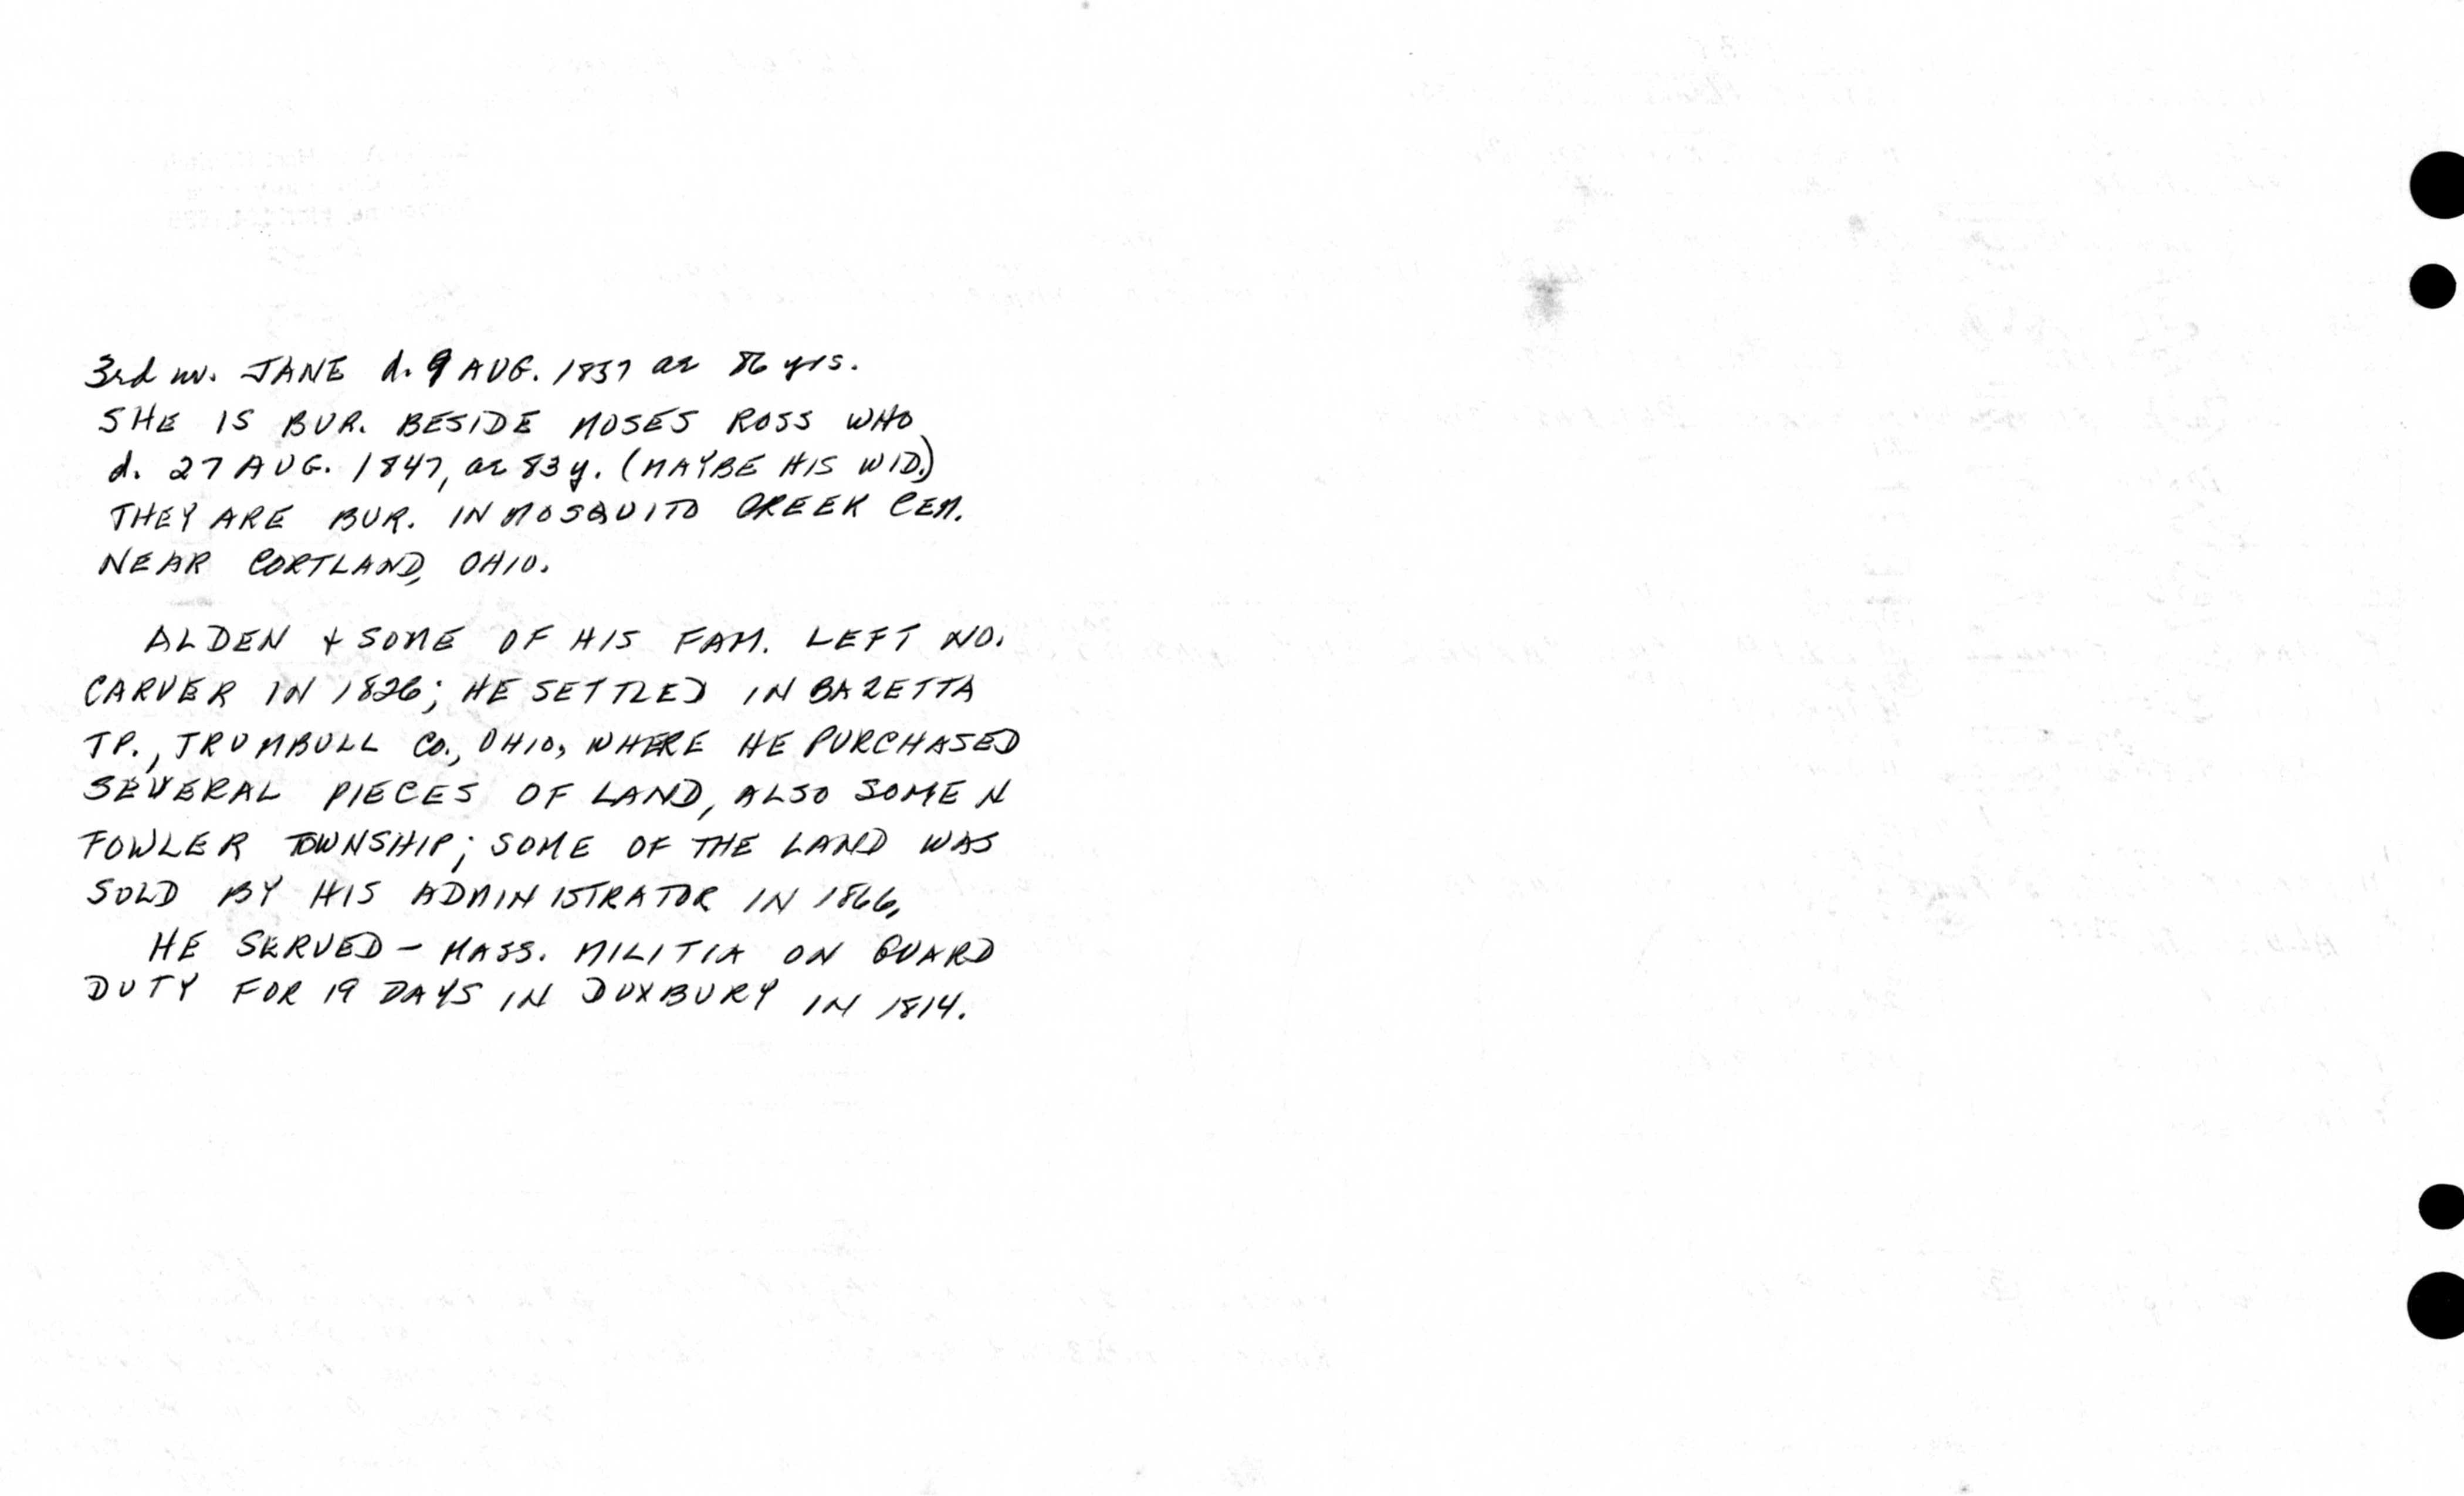 3rd w. JANE d. 9 AUG. 1837 ae 86 yrs.
SHE IS BUR. BESIDE MOSES ROSS WHO
d. 27 AUG. 1847, ae 83 y. (MAYBE HIS WID.)
THEY ARE BUR. IN MOSQUITO CREEK CEM.
NEAR CORTLAND, OHIO.
ALDEN & SOME OF HIS FAM. LEFT NO.
CARVER IN 1826; HE SETTLED IN BAZETTA
TP., TRUMBULL CO., OHIO, WHERE HE PURCHASED
SEVERAL PIECES OF LAND, ALSO SOME N
FOWLER TOWNSHIP; SOME OF THE LAND WAS
SOLD BY HIS ADMINISTRATOR IN 1866.
HE SERVED - MASS. MILITIA ON GUARD
DUTY FOR 19 DAYS IN DUXBURY IN 1814.